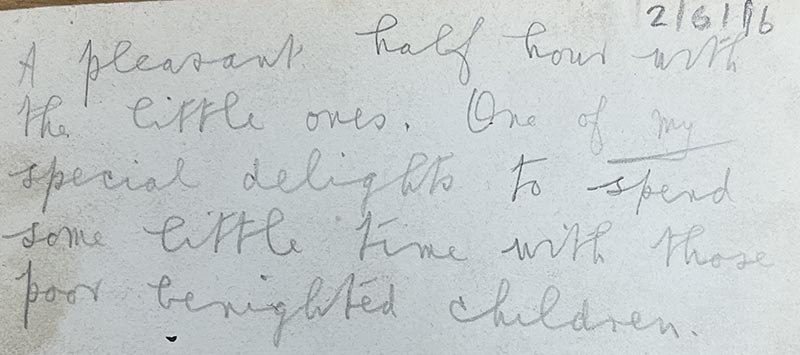 2/6/16
A pleasant half hour with
the little ones. One of my
special delights to spend
some little time with those
poor benighted children.